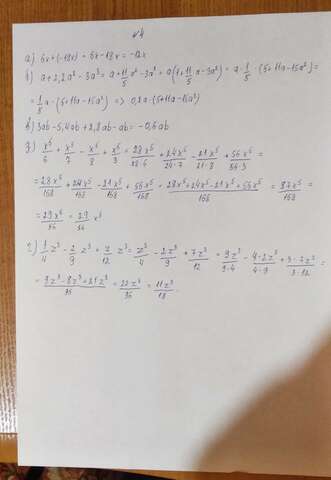 №4
а) 6x+(-18x) = 6x-18x = -12x
б) a+2,2a²-3a³ = a+11/5 a²-3a³ = a(1+11/5 a-3a²) = a·1/5·(5+11a-15a²) =
= 1/5 a·(5+11a-15a²) => 0,2a·(5+11a-15a²)
в) 3ab-5,4ab+2,8ab-ab = -0,6ab
д) x⁵/6 + x⁵/7 - x⁵/8 + x⁵/3 = 28x⁵/28·6 + 24x⁵/24·7 - 21x⁵/21·8 + 56x⁵/56·3 =
= 28x⁵/168 + 24x⁵/168 - 21x⁵/168 + 56x⁵/168 = 28x⁵+24x⁵-21x⁵+56x⁵/168 = 87x⁵/168 =
= 29x⁵/56 = 29/56 x⁵
г) 1/4 z³ - 2/9 z³ + 7/12 z³ = z³/4 - 2z³/9 + 7z³/12 = 9z³/9·4 - 4·2z³/4·9 + 3·7z³/3·12 =
= 9z³-8z³+21z³/36 = 22z³/36 = 11z³/18.